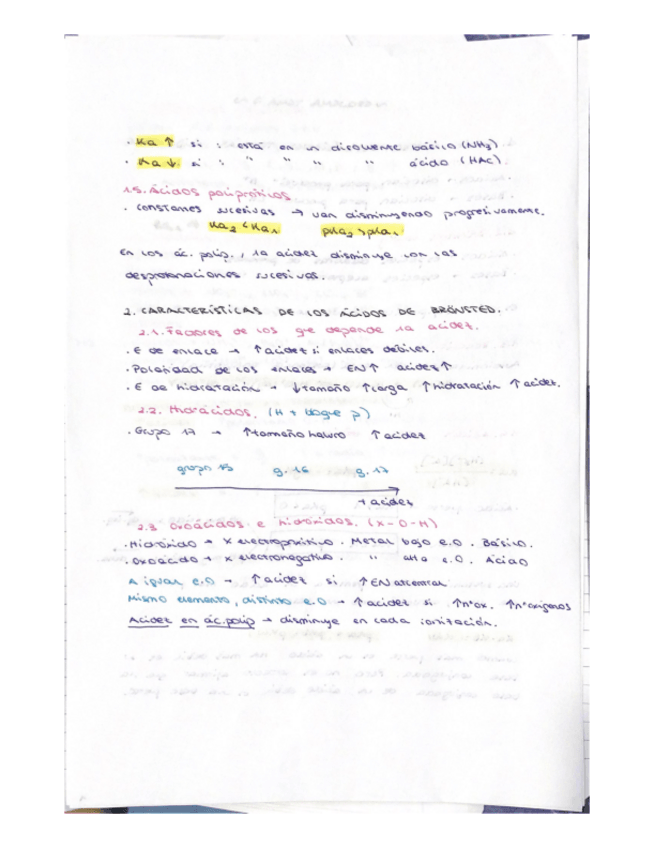 · Ka ↑ si : está en un disolvente básico (NH3)
· Ka ↓ si : " " " " ácido (HAc).
1.5. Ácidos polipróticos
· Constantes sucesivas → van disminuyendo progresivamente.
Ka2 < Ka1 pKa2 > pKa1
En los ác. polip., la acidez disminuye con las
desprotonaciones sucesivas.
2. CARACTERÍSTICAS DE LOS ÁCIDOS DE BRÖNSTED.
2.1. Factores de los que depende la acidez.
· E de enlace → ↑ acidez si enlaces débiles.
· Polaridad de los enlaces → EN↑ acidez↑
· E de hidratación → ↓tamaño ↑carga ↑hidratación ↑acidez.
2.2. Hidrácidos. (H + bloque p)
· Grupo 17 → ↑tamaño haluro ↑acidez
grupo 15 g. 16 g. 17
+ acidez
2.3 Oxoácidos e hidróxidos. (X-O-H)
· Hidróxido → X electropositivo. Metal bajo e.o. Básico.
· Oxoácido → X electronegativo. " alto e.o. Ácido
A igual e.o → ↑acidez si ↑EN at central
Mismo elemento, distinto e.o → ↑acidez si ↑nºox. ↑nºoxígenos
Acidez en ác. polip → disminuye en cada ionización.